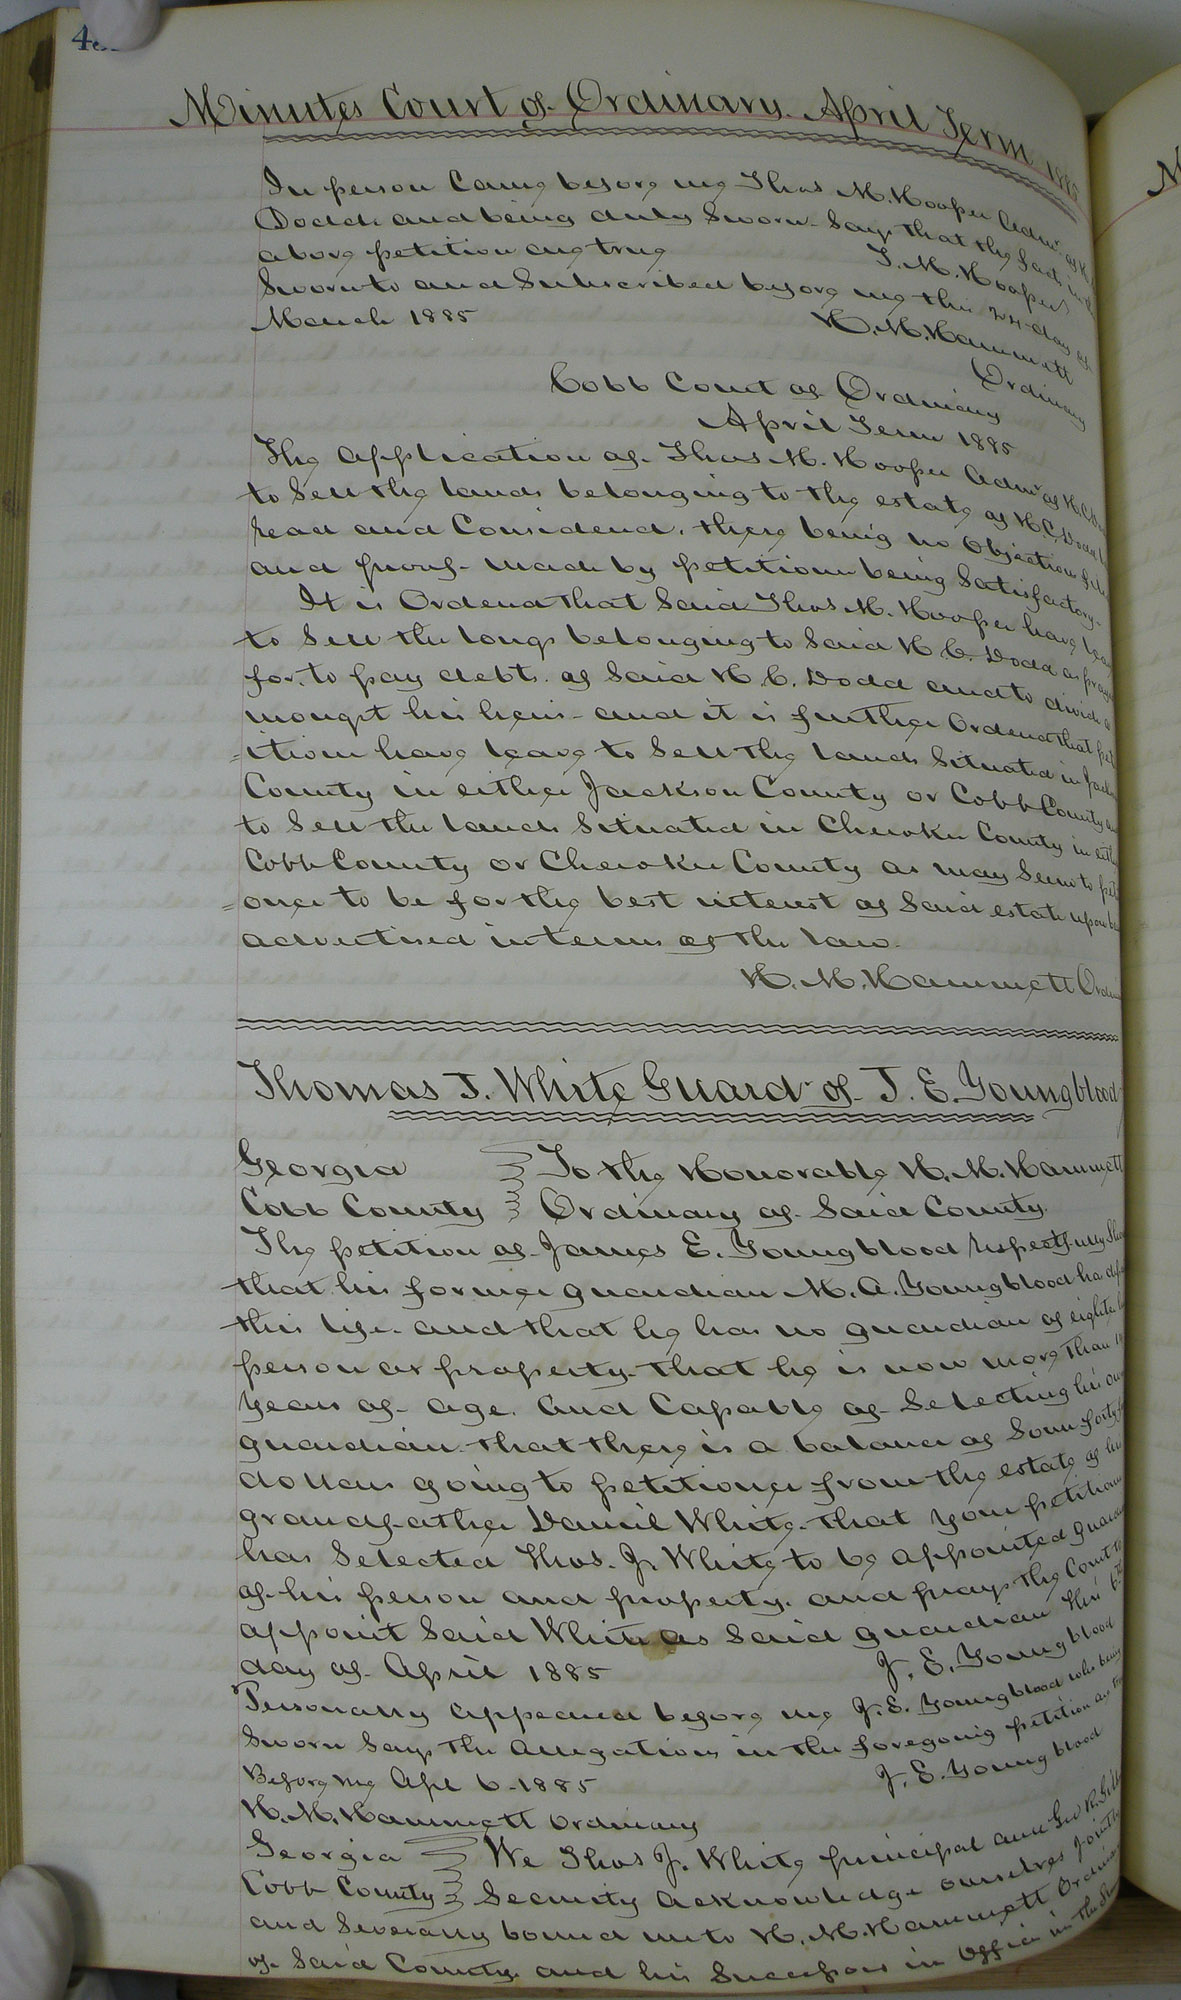 Minutes Court of Ordinary. April Term 1885
In person Came before me Thos M. Hooper Admr of H.
Dodd and being duly Sworn Says that the facts in the
above petition are true T. M. Hooper
Sworn to and Subscribed before me this 24 day of
March 1885 H. M. Hammett
Ordinary
Cobb Court of Ordinary
April Term 1885
The application of Thos M. Hooper Admr of H. C.
to Sell the lands belonging to the estate of H. C. Dodd
read and Considered. there being no Objections
and proof made by petitioner being Satisfactory.
It is Ordered that Said Thos M. Hooper have
to Sell the longs belonging to Said H. C. Dodd as
for. to pay debts of Said H. C. Dodd and to divide a
mongst his heirs and it is further Ordered that pet
=itioner have leave to Sell the lands Situated in
County in either Jackson County or Cobb County
to Sell the lands Situated in Cherokee County in
Cobb County or Cherokee County as may Seem to
=oner to be for the best interest of Said estate upon
advertised in terms of the law.
H. M. Hammett
Thomas J. White Guardr of J. E. Youngblood
Georgia To the Honorable H. M. Hammett
Cobb County Ordinary of Said County.
The petition of James E. Youngblood respectfully
that his former guardian M. A. Youngblood
this life and that he has no guardian of
person or property. that he is now more than
years of age. and Capable of Selecting his
guardian that there is a balance of Some forty
dollars going to petitioner from the estate of his
grandfather Daniel White. that your petitioner
has Selected Thos. J. White to be appointed
of his person and property. and prays the Court to
appoint Said White as Said guardian this 6th
day of April 1885 J. E. Youngblood
Personally appeared before me J. E. Youngblood who being
Sworn Says the Allegations in the foregoing petition are
Before me Apl 6-1885 J. E. Youngblood
H. M. Hammett Ordinary
Georgia We Thos J. White principal and Geo R.
Cobb County Security acknowledge ourselves jointly
and Severally bound unto H. M. Hammett
of Said County and his Successors in Office in the